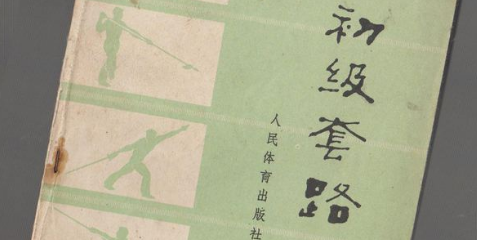 初级套路
人民体育出版社